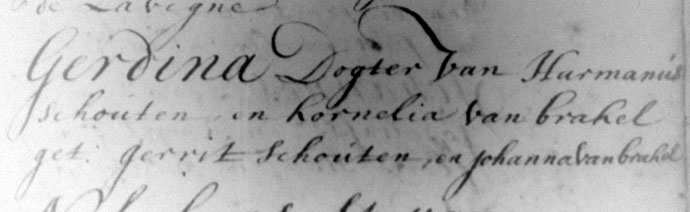 de Lavigne
Gerdina Dogter van Hurmanus
schouten en kornelia van brakel
get. Gerrit schouten, en johanna van brakel